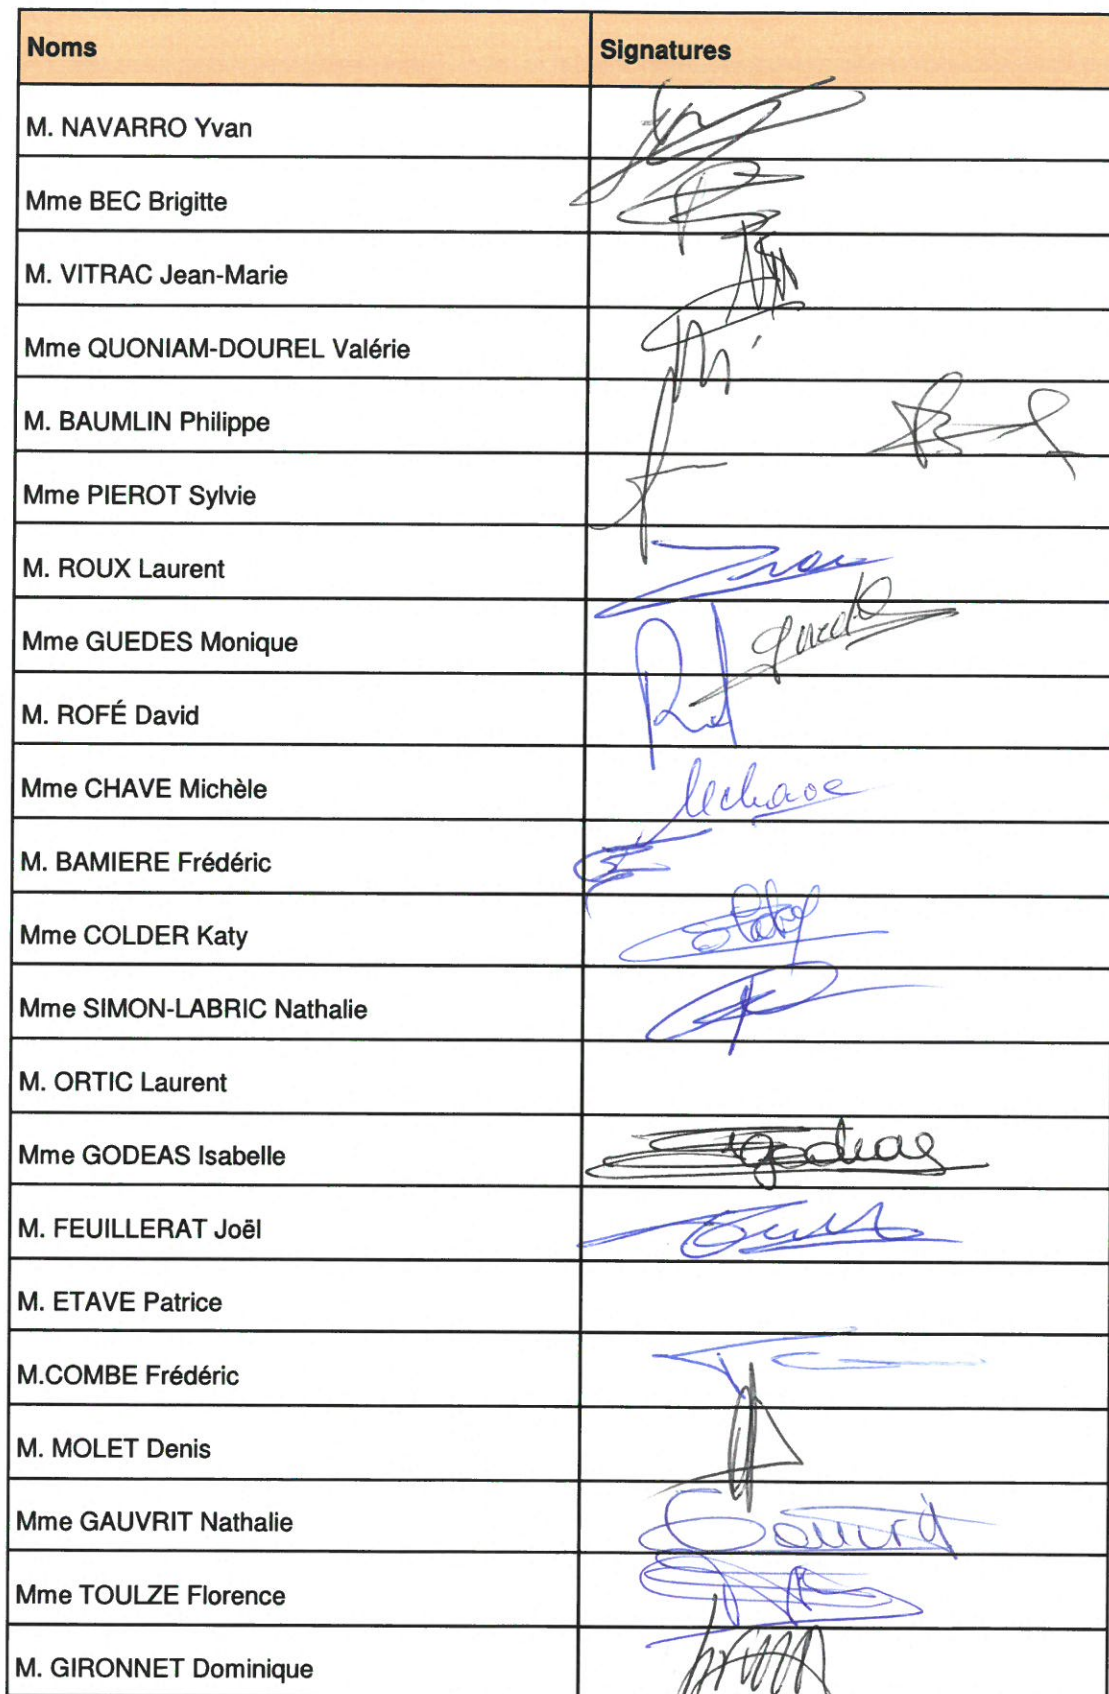 Noms Signatures
M. NAVARRO Yvan
Mme BEC Brigitte
M. VITRAC Jean-Marie
Mme QUONIAM-DOUREL Valérie
M. BAUMLIN Philippe
Mme PIEROT Sylvie
M. ROUX Laurent
Mme GUEDES Monique
M. ROFÉ David
Mme CHAVE Michèle
M. BAMIERE Frédéric
Mme COLDER Katy
Mme SIMON-LABRIC Nathalie
M. ORTIC Laurent
Mme GODEAS Isabelle
M. FEUILLERAT Joël
M. ETAVE Patrice
M.COMBE Frédéric
M. MOLET Denis
Mme GAUVRIT Nathalie Gauvrit
Mme TOULZE Florence
M. GIRONNET Dominique